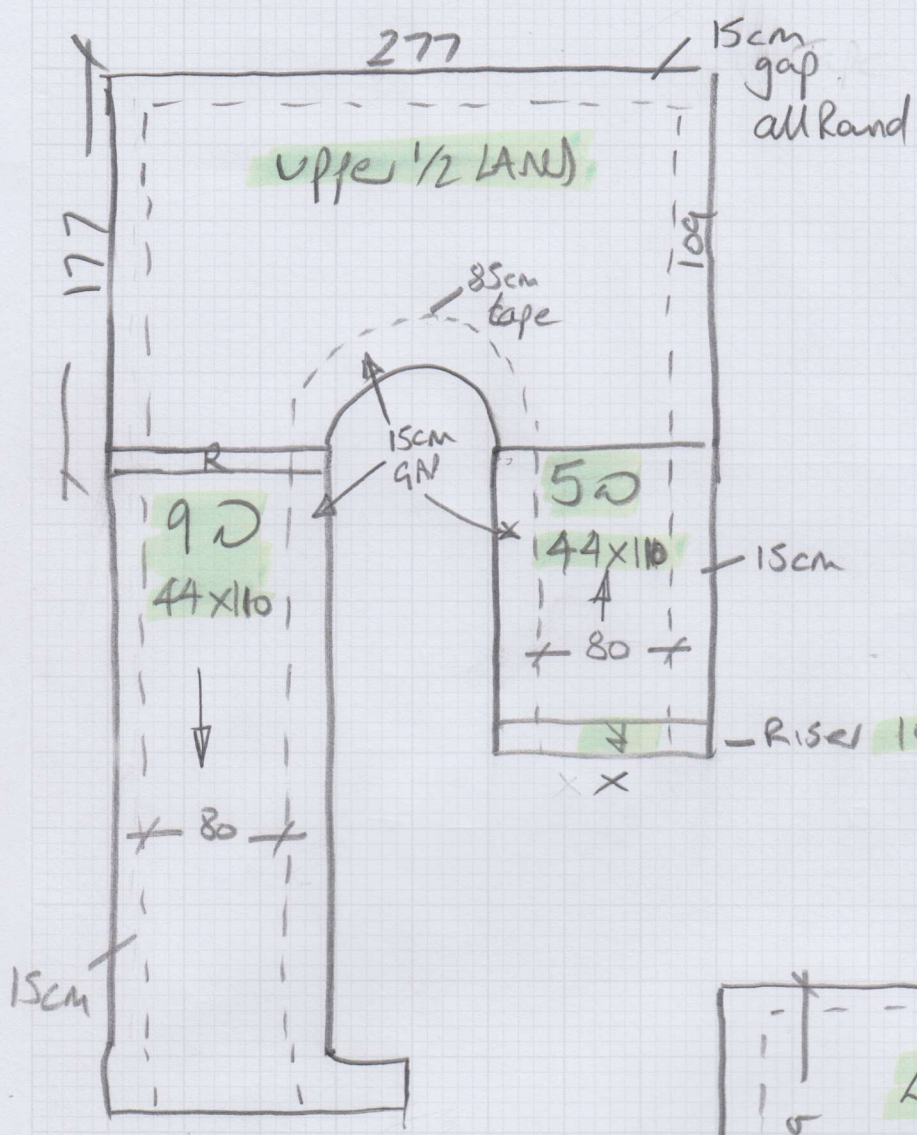 277
15cm
gap
all Round
Upper 1/2 LAND
177
109
85cm
tape
15cm
GAP
R
9
44x110
5
44x110
80
15cm
Riser
X
80
15cm